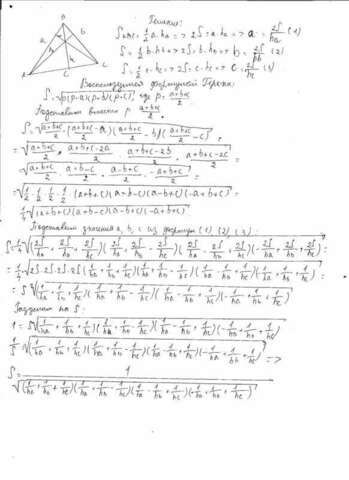 B
a
b
A
C
C
Решение:
S_ABC = 1/2 a·h_a => 2S = a·h_a => a = 2S/h_a (1)
S = 1/2 b·h_b => 2S = b·h_b => b = 2S/h_b (2)
S = 1/2 c·h_c => 2S = c·h_c => c = 2S/h_c (3)
Воспользуемся формулой Герона:
S = √(p(p-a)(p-b)(p-c)), где p = (a+b+c)/2
Подставим вместо p (a+b+c)/2
S = √((a+b+c)/2 ((a+b+c)/2 - a)((a+b+c)/2 - b)((a+b+c)/2 - c)) =
= √((a+b+c)/2 · (a+b+c-2a)/2 · (a+b+c-2b)/2 · (a+b+c-2c)/2) =
= √((a+b+c)/2 · (a+b-c)/2 · (a-b+c)/2 · (-a+b+c)/2) =
= √(1/2 · 1/2 · 1/2 · 1/2 (a+b+c)(a+b-c)(a-b+c)(-a+b+c)) =
1/4 √((a+b+c)(a+b-c)(a-b+c)(-a+b+c))
Подставим значения a, b, c из формул (1) (2) (3):
S = 1/4 √((2S/h_a + 2S/h_b + 2S/h_c)(2S/h_a + 2S/h_b - 2S/h_c)(2S/h_a - 2S/h_b + 2S/h_c)(-2S/h_a + 2S/h_b + 2S/h_c)) =
= 1/4 √(2S·2S·2S·2S (1/h_a + 1/h_b + 1/h_c)(1/h_a + 1/h_b - 1/h_c)(1/h_a - 1/h_b + 1/h_c)(-1/h_a + 1/h_b + 1/h_c)) =
= S² √((1/h_a + 1/h_b + 1/h_c)(1/h_a + 1/h_b - 1/h_c)(1/h_a - 1/h_b + 1/h_c)(-1/h_a + 1/h_b + 1/h_c))
Разделим на S:
1 = S √((1/h_a + 1/h_b + 1/h_c)(1/h_a + 1/h_b - 1/h_c)(1/h_a - 1/h_b + 1/h_c)(-1/h_a + 1/h_b + 1/h_c))
1/S = √((1/h_a + 1/h_b + 1/h_c)(1/h_a + 1/h_b - 1/h_c)(1/h_a - 1/h_b + 1/h_c)(-1/h_a + 1/h_b + 1/h_c)) =>
S = 1/√((1/h_a + 1/h_b + 1/h_c)(1/h_a + 1/h_b - 1/h_c)(1/h_a - 1/h_b + 1/h_c)(-1/h_a + 1/h_b + 1/h_c))